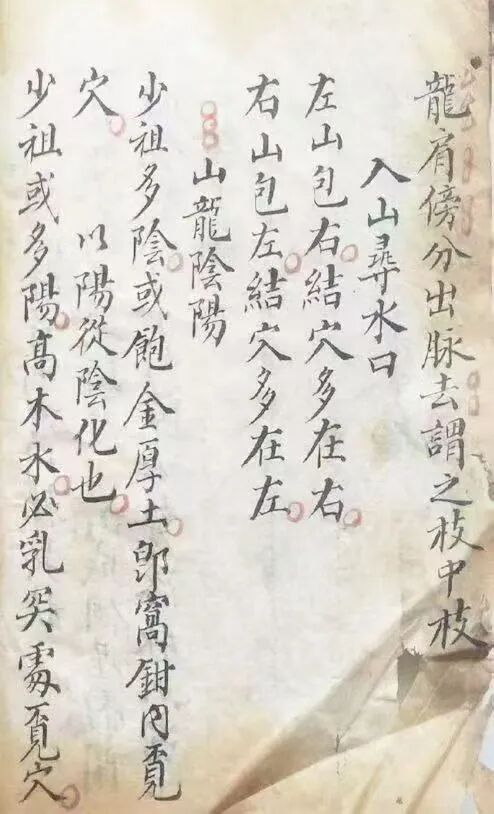 龍肩傍分出脈去謂之枝中枝
入山尋水口
左山包右結穴多在右
右山包左結穴多在左
山龍陰陽
少祖多陰或飽金厚土郎窩鉗內覔
穴 以陽從陰化也
少祖或多陽高木水必乳突處覔穴